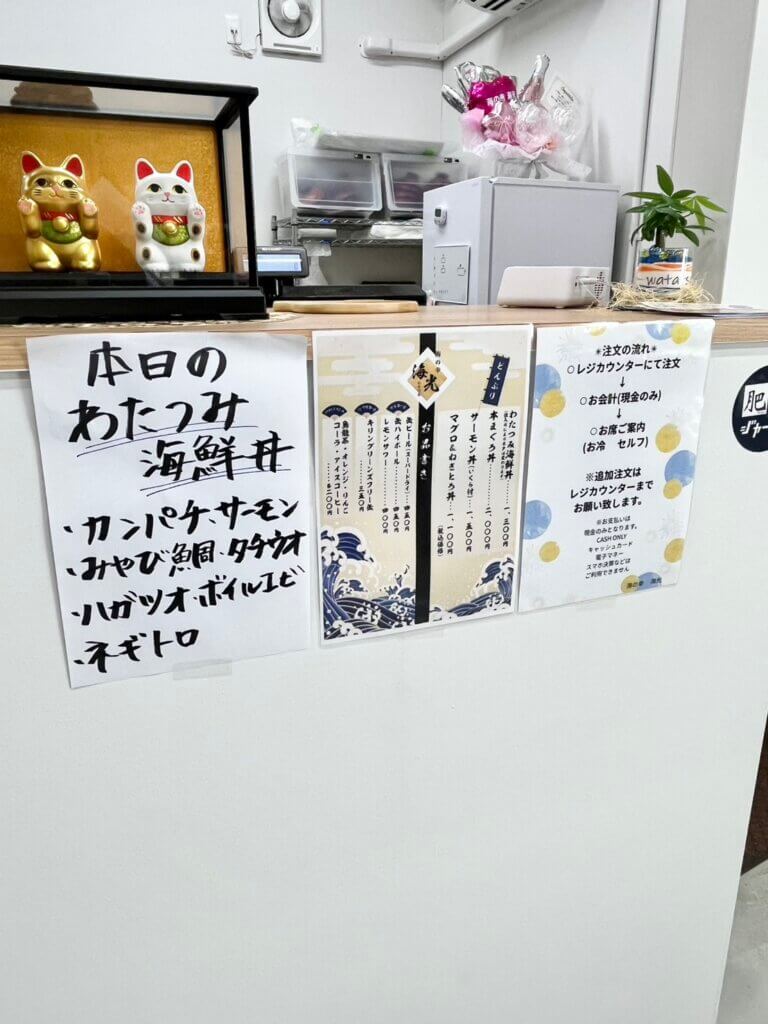 本日の
わたつみ
海鮮丼
・カンパチ、サーモン
・みやび鯛・タチウオ
・ハガツオ・ボイルエビ
・ネギトロ
海の幸
海光
お品書き
どんぶり
わたつみ海鮮丼……一、三〇〇円
本まぐろ丼……二、〇〇〇円
サーモン丼(いくら付)……一、五〇〇円
マグロ&ねぎとろ丼……一、一〇〇円
(税込価格)
缶ビール(スーパードライ)……四五〇円
缶ハイボール……四五〇円
レモンサワー……四五〇円
キリングリーンズフリー缶
……三五〇円
烏龍茶・オレンジ・りんご
コーラ・アイスコーヒー
……各二〇〇円
*注文の流れ*
○レジカウンターにて注文
↓
○お会計(現金のみ)
↓
○お席ご案内
(お冷　セルフ)
※追加注文は
レジカウンターまで
お願い致します。
※お支払いは
現金のみとなります。
CASH ONLY
キャッシュカード
電子マネー
スマホ決算などは
ご利用できません
海の幸　海光
wata
肥
ジャー